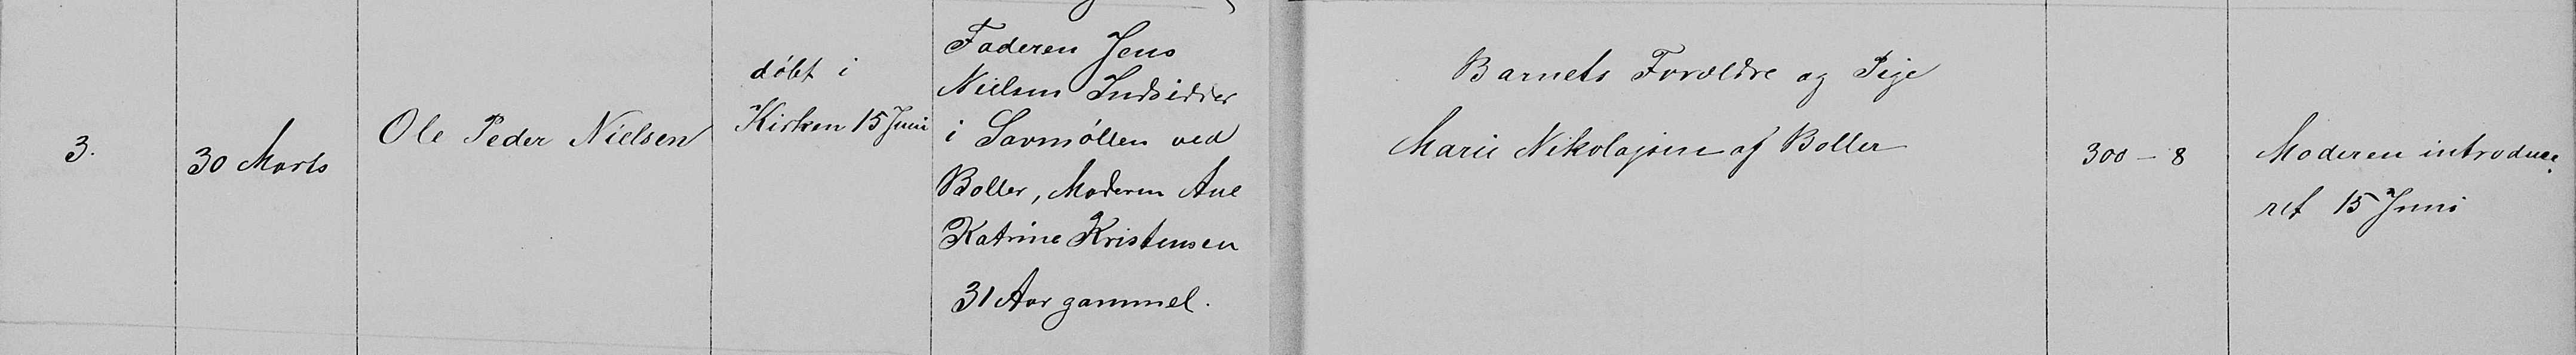 3.
30 Marts
Ole Peder Nielsen
døbt i
Kirken 15 Juni
Faderen Jens
Nielsen Indsidder
i Savmøllen ved
Boller, Moderen Ane
Katrine Kristensen
31 Aar gammel.
Barnets Forældre og Pige
Marie Nikolajsen af Boller
300 - 8
Moderen introduce-
ret 15 Juni